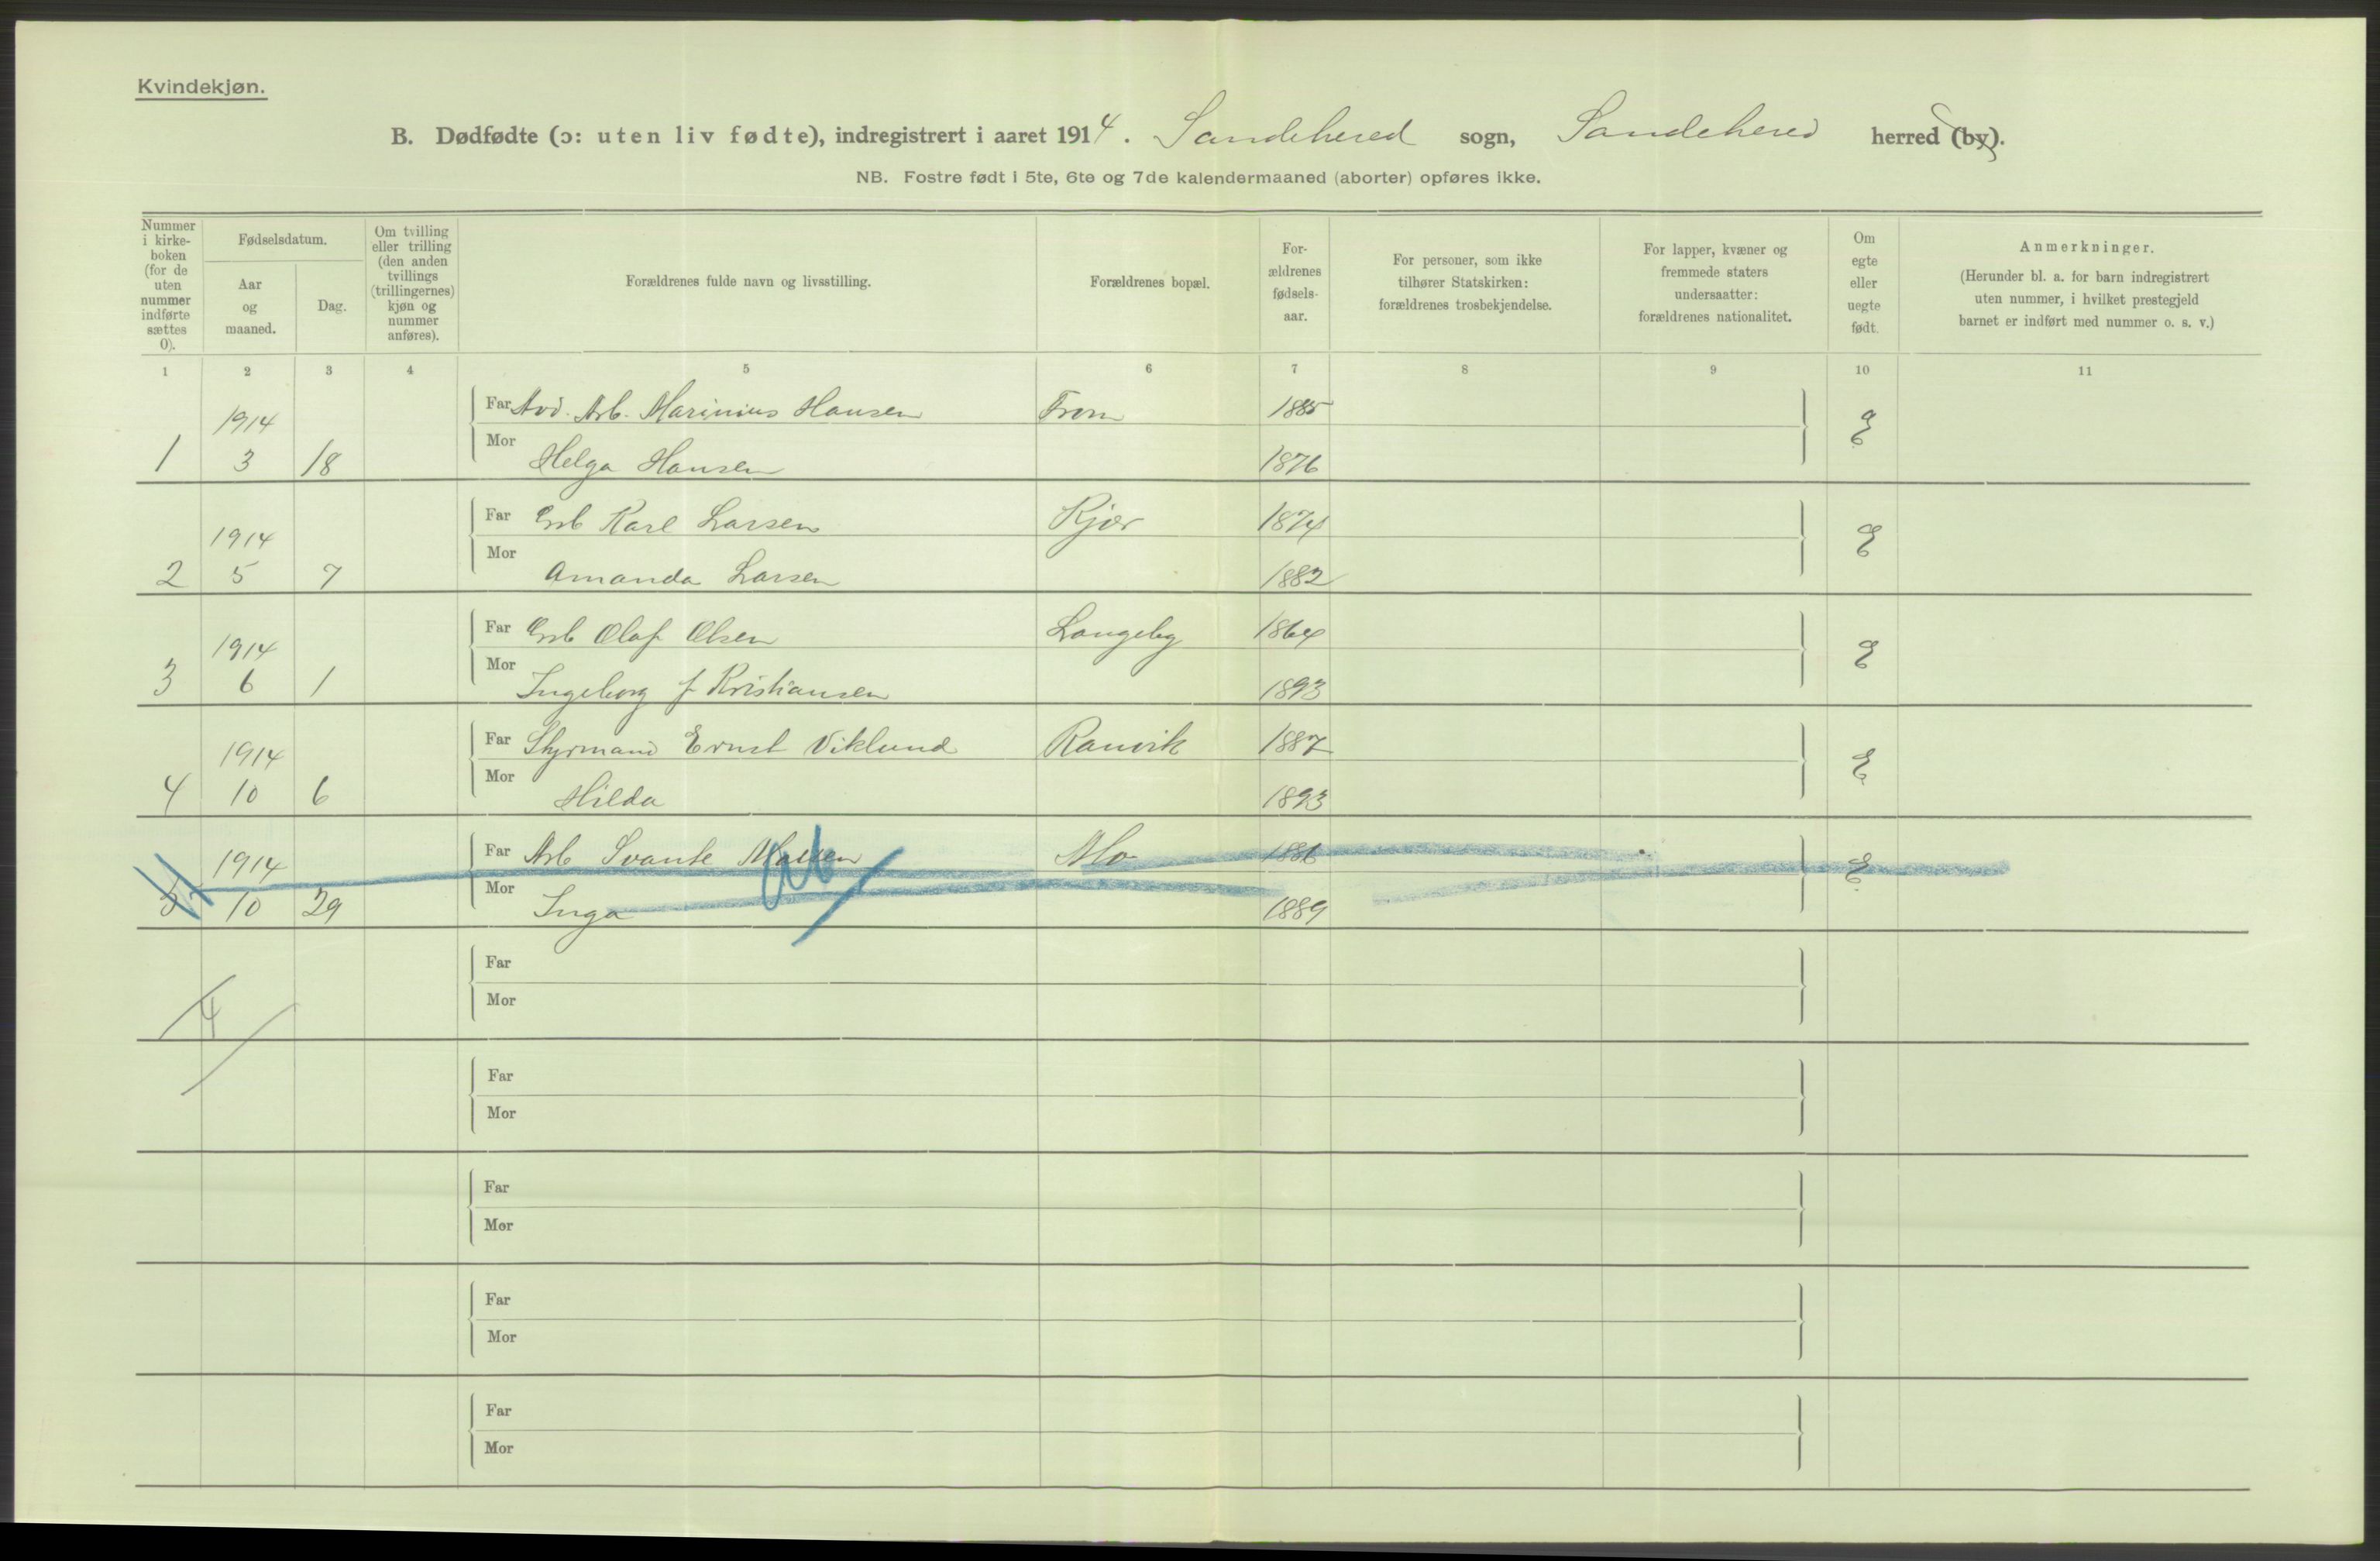 Kvindekjøn.
B. Dødfødte (ɔ: uten liv fødte), indregistrert i aaret 1914. Sandehered sogn, Sandehered herred (by).
NB. Fostre født i 5te, 6te og 7de kalendermaaned (aborter) opføres ikke.
Nummer i kirkeboken (for de uten nummer indførte sættes 0).
Fødselsdatum.
Aar og maaned.
Dag.
Om tvilling eller trilling (den anden tvillings (trillingernes) kjøn og nummer anføres).
Forældrenes fulde navn og livsstilling.
Forældrenes bopæl.
Forældrenes fødselsaar.
For personer, som ikke tilhører Statskirken: forældrenes trosbekjendelse.
For lapper, kvæner og fremmede staters undersaatter: forældrenes nationalitet.
Om egte eller uegte født.
Anmerkninger.
(Herunder bl. a. for barn indregistrert uten nummer, i hvilket prestegjeld barnet er indført med nummer o. s. v.)
1 2 3 4 5 6 7 8 9 10 11
1914
Far Arb. Marinius Hansen 1885
1 3 18 Mor Helga Hansen 1876 E
1914
Far Karl Larsen Kjær 1874
2 5 7 Mor Amanda Larsen 1882 E
1914
Far Olaf Olsen Langeby 1864
3 6 1 Mor Ingeborg f Kristiansen 1893 E
1914
Far Styrmand Ernst Viklund Ranvik 1887
4 10 6 Mor Hilda 1893 E
1914
Far Arb Svante Mo 1886
5 10 29 Mor Inga 1889 E
Ab
Far
Mor
4
Far
Mor
Far
Mor
Far
Mor
Far
Mor